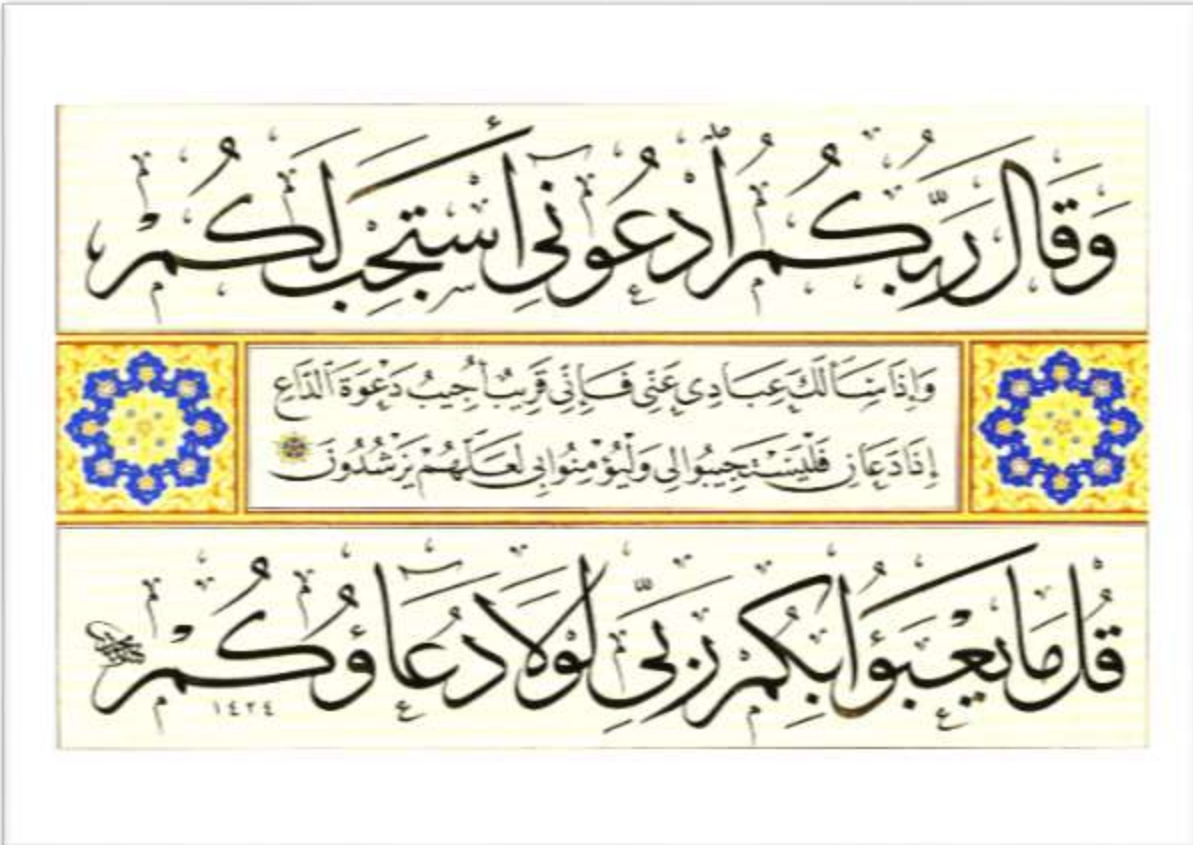 وَقَالَ رَبُّكُمُ ٱدْعُونِىٓ أَسْتَجِبْ لَكُمْ
وَإِذَا سَأَلَكَ عِبَادِى عَنِّى فَإِنِّى قَرِيبٌ أُجِيبُ دَعْوَةَ ٱلدَّاعِ
إِذَا دَعَانِ فَلْيَسْتَجِيبُوا لِى وَلْيُؤْمِنُوا بِى لَعَلَّهُمْ يَرْشُدُونَ
قُلْ مَا يَعْبَؤُا بِكُمْ رَبِّى لَوْلَا دُعَاؤُكُمْ
١٤٢٤